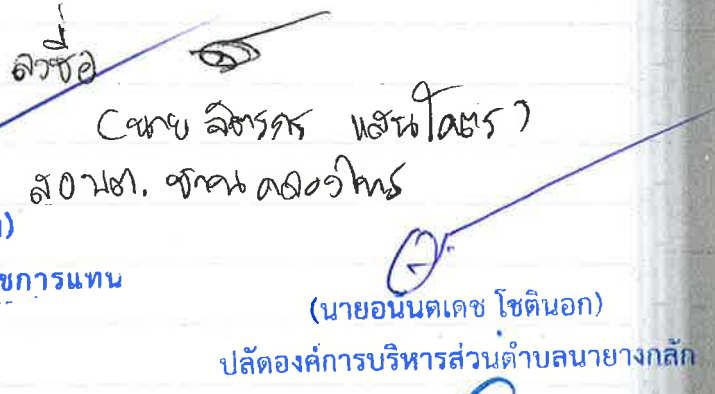 ลงชื่อ
(นาย จิตรกร แสนโคตร)
ส.อบต. บ้านคลองไทร
)
ขการแทน
(นายอนันตเดช โชตินอก)
ปลัดองค์การบริหารส่วนตำบลนายางกลัก